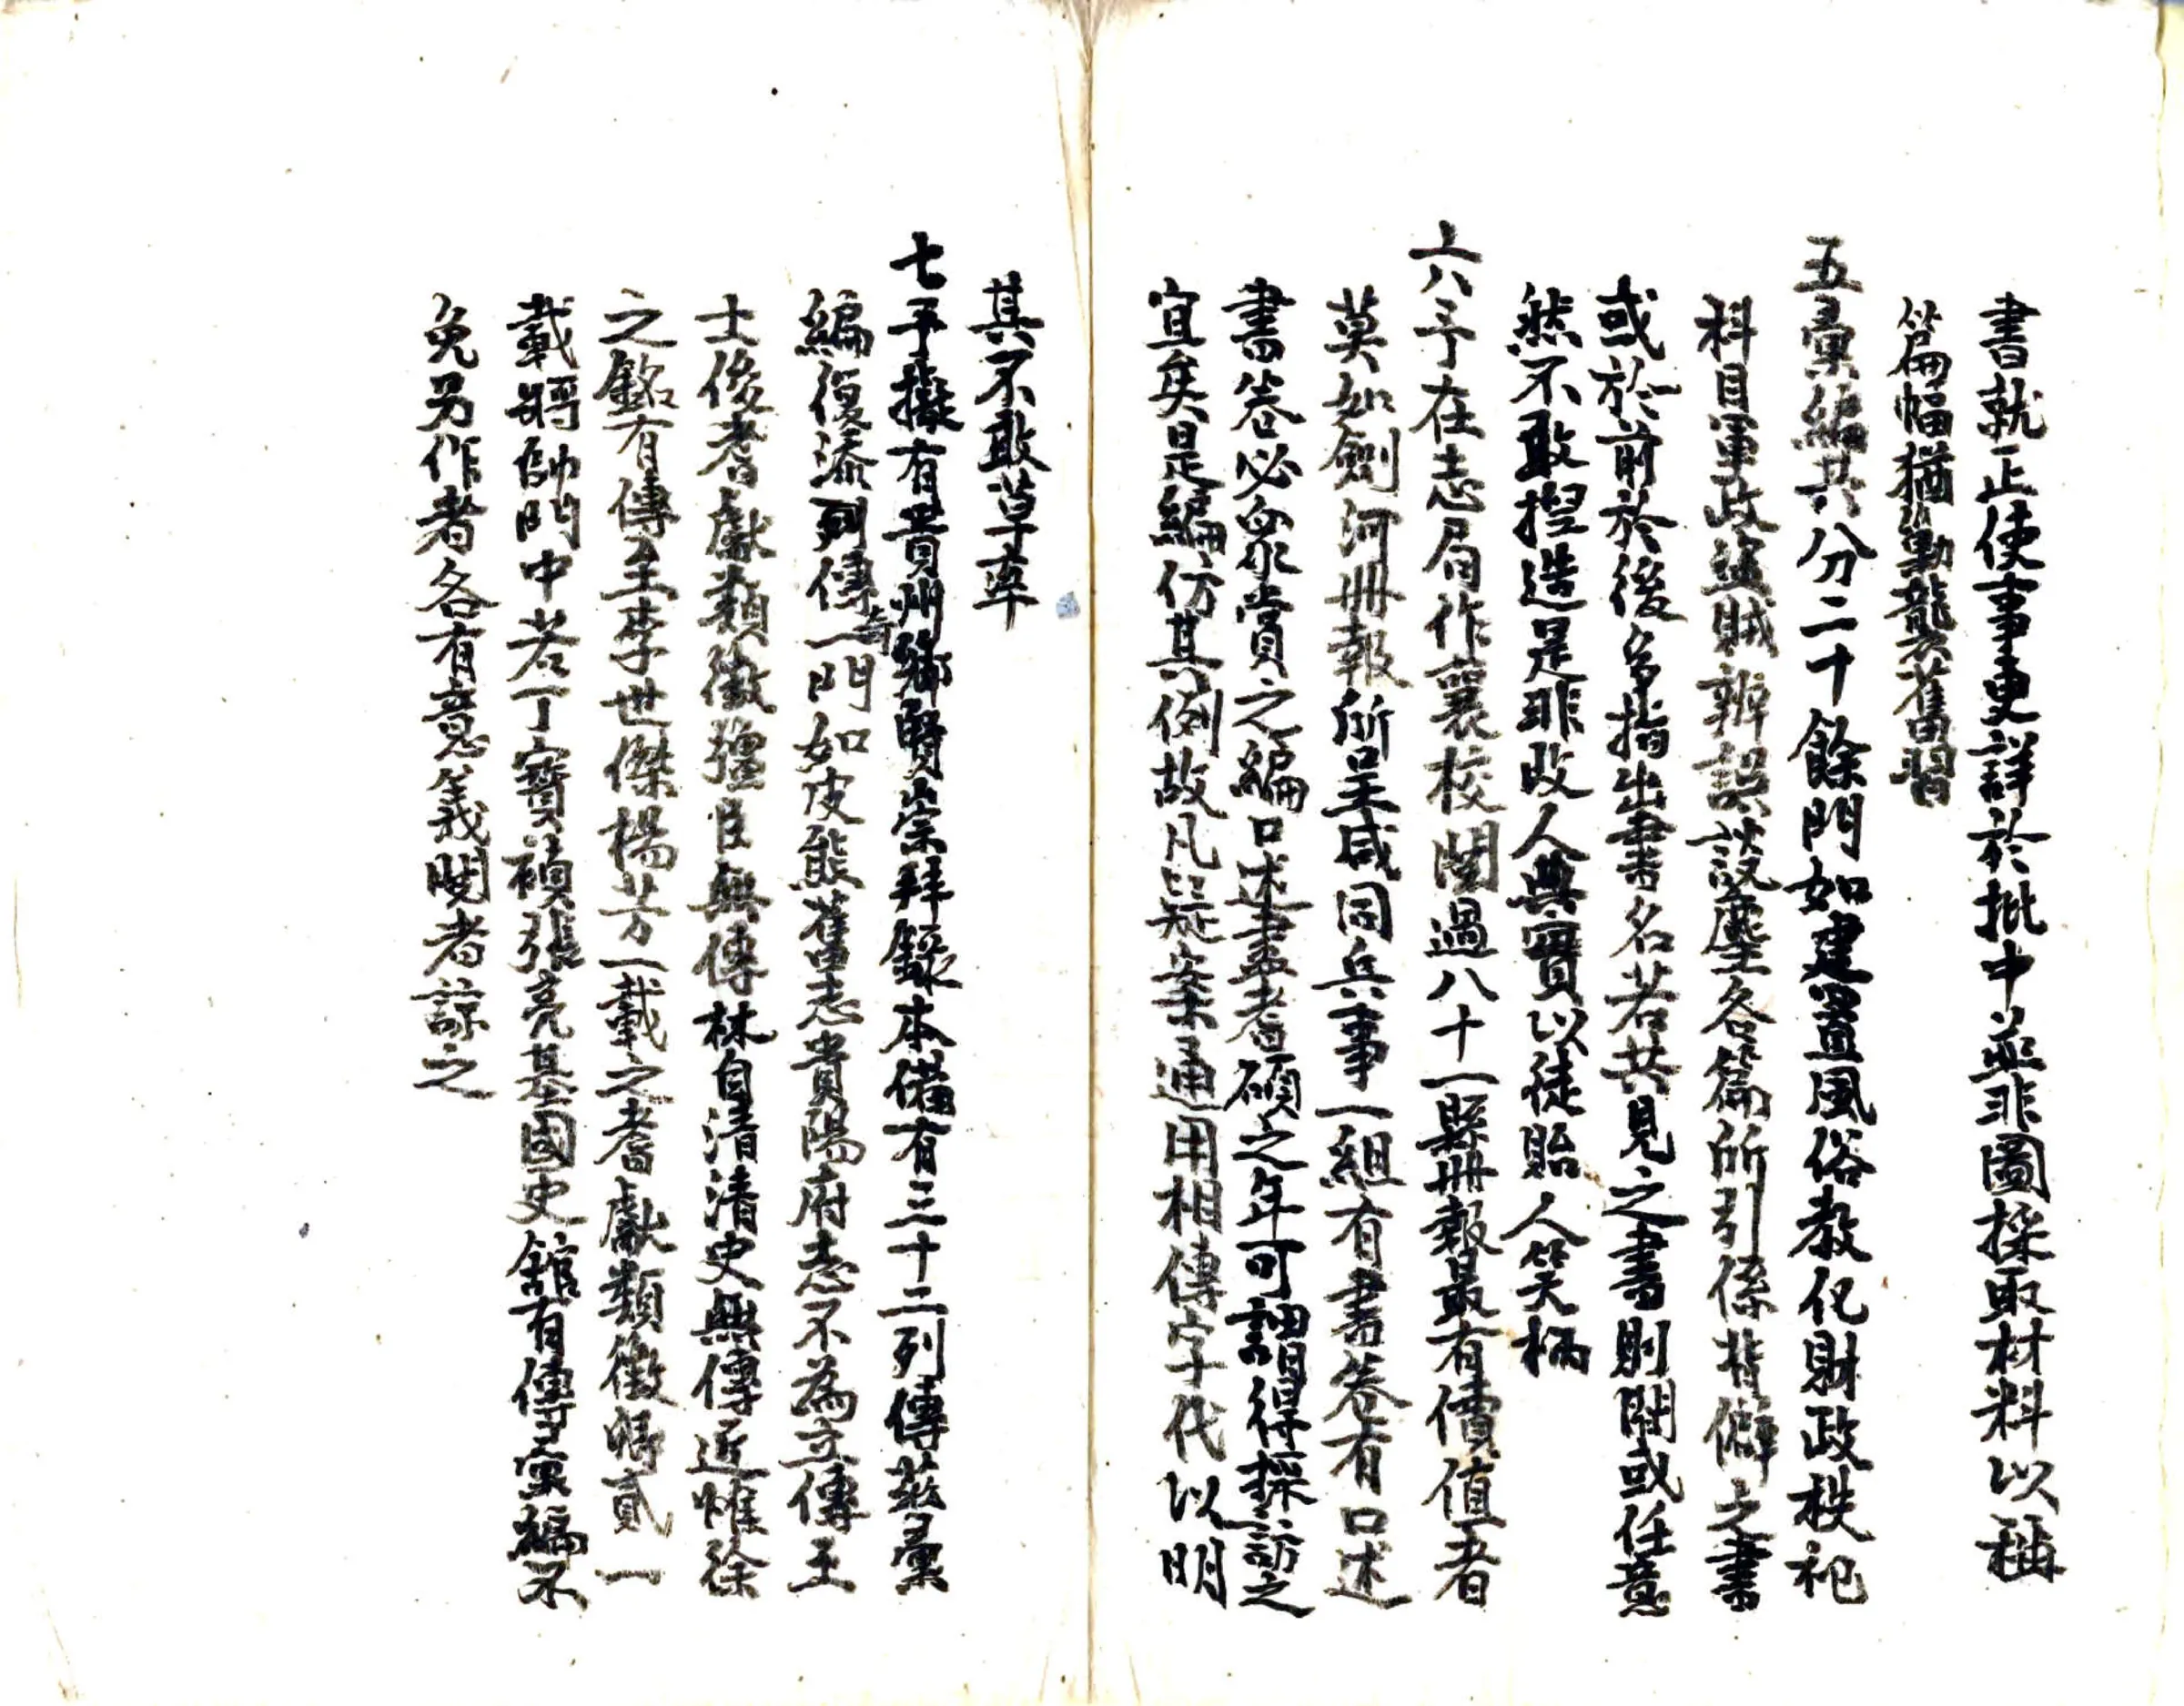 書就正使事更詳於批中並非圖採取材料以稱
篇幅猶勦襲舊習
五彙編共分二十餘門如建置風俗教化財政秩祀
科目軍政盜賊辨誤談塵各篇所引係背僻之書
或於前於後多指出書名若共見之書則闕或任意
然不敢揑造是非改人典實以徒貽人笑柄
六予在志局作襄校閱過八十一縣冊報最有價值者
莫如劍河冊報所呈咸同兵事一組有書卷有口述
書卷必衆賞之編口述盡耆碩之年可謂得採訪之
宜矣是編仿其例故凡疑案通用相傳字代以明
其不敢草率
七予擬有貴州鄉賢崇拜錄本備有三十二列傳茲彙
編復添列傳奇一門如皮熊舊志貴陽府志不為立傳王
士俊耆獻類徵彊臣無傳林自清清史無傳近惟徐
之銘有傳至李世傑楊芳一載之耆獻類徵將貳一
載將帥門中若丁寶楨張亮基國史館有傳寅編不
免另作者各有意義閱者諒之